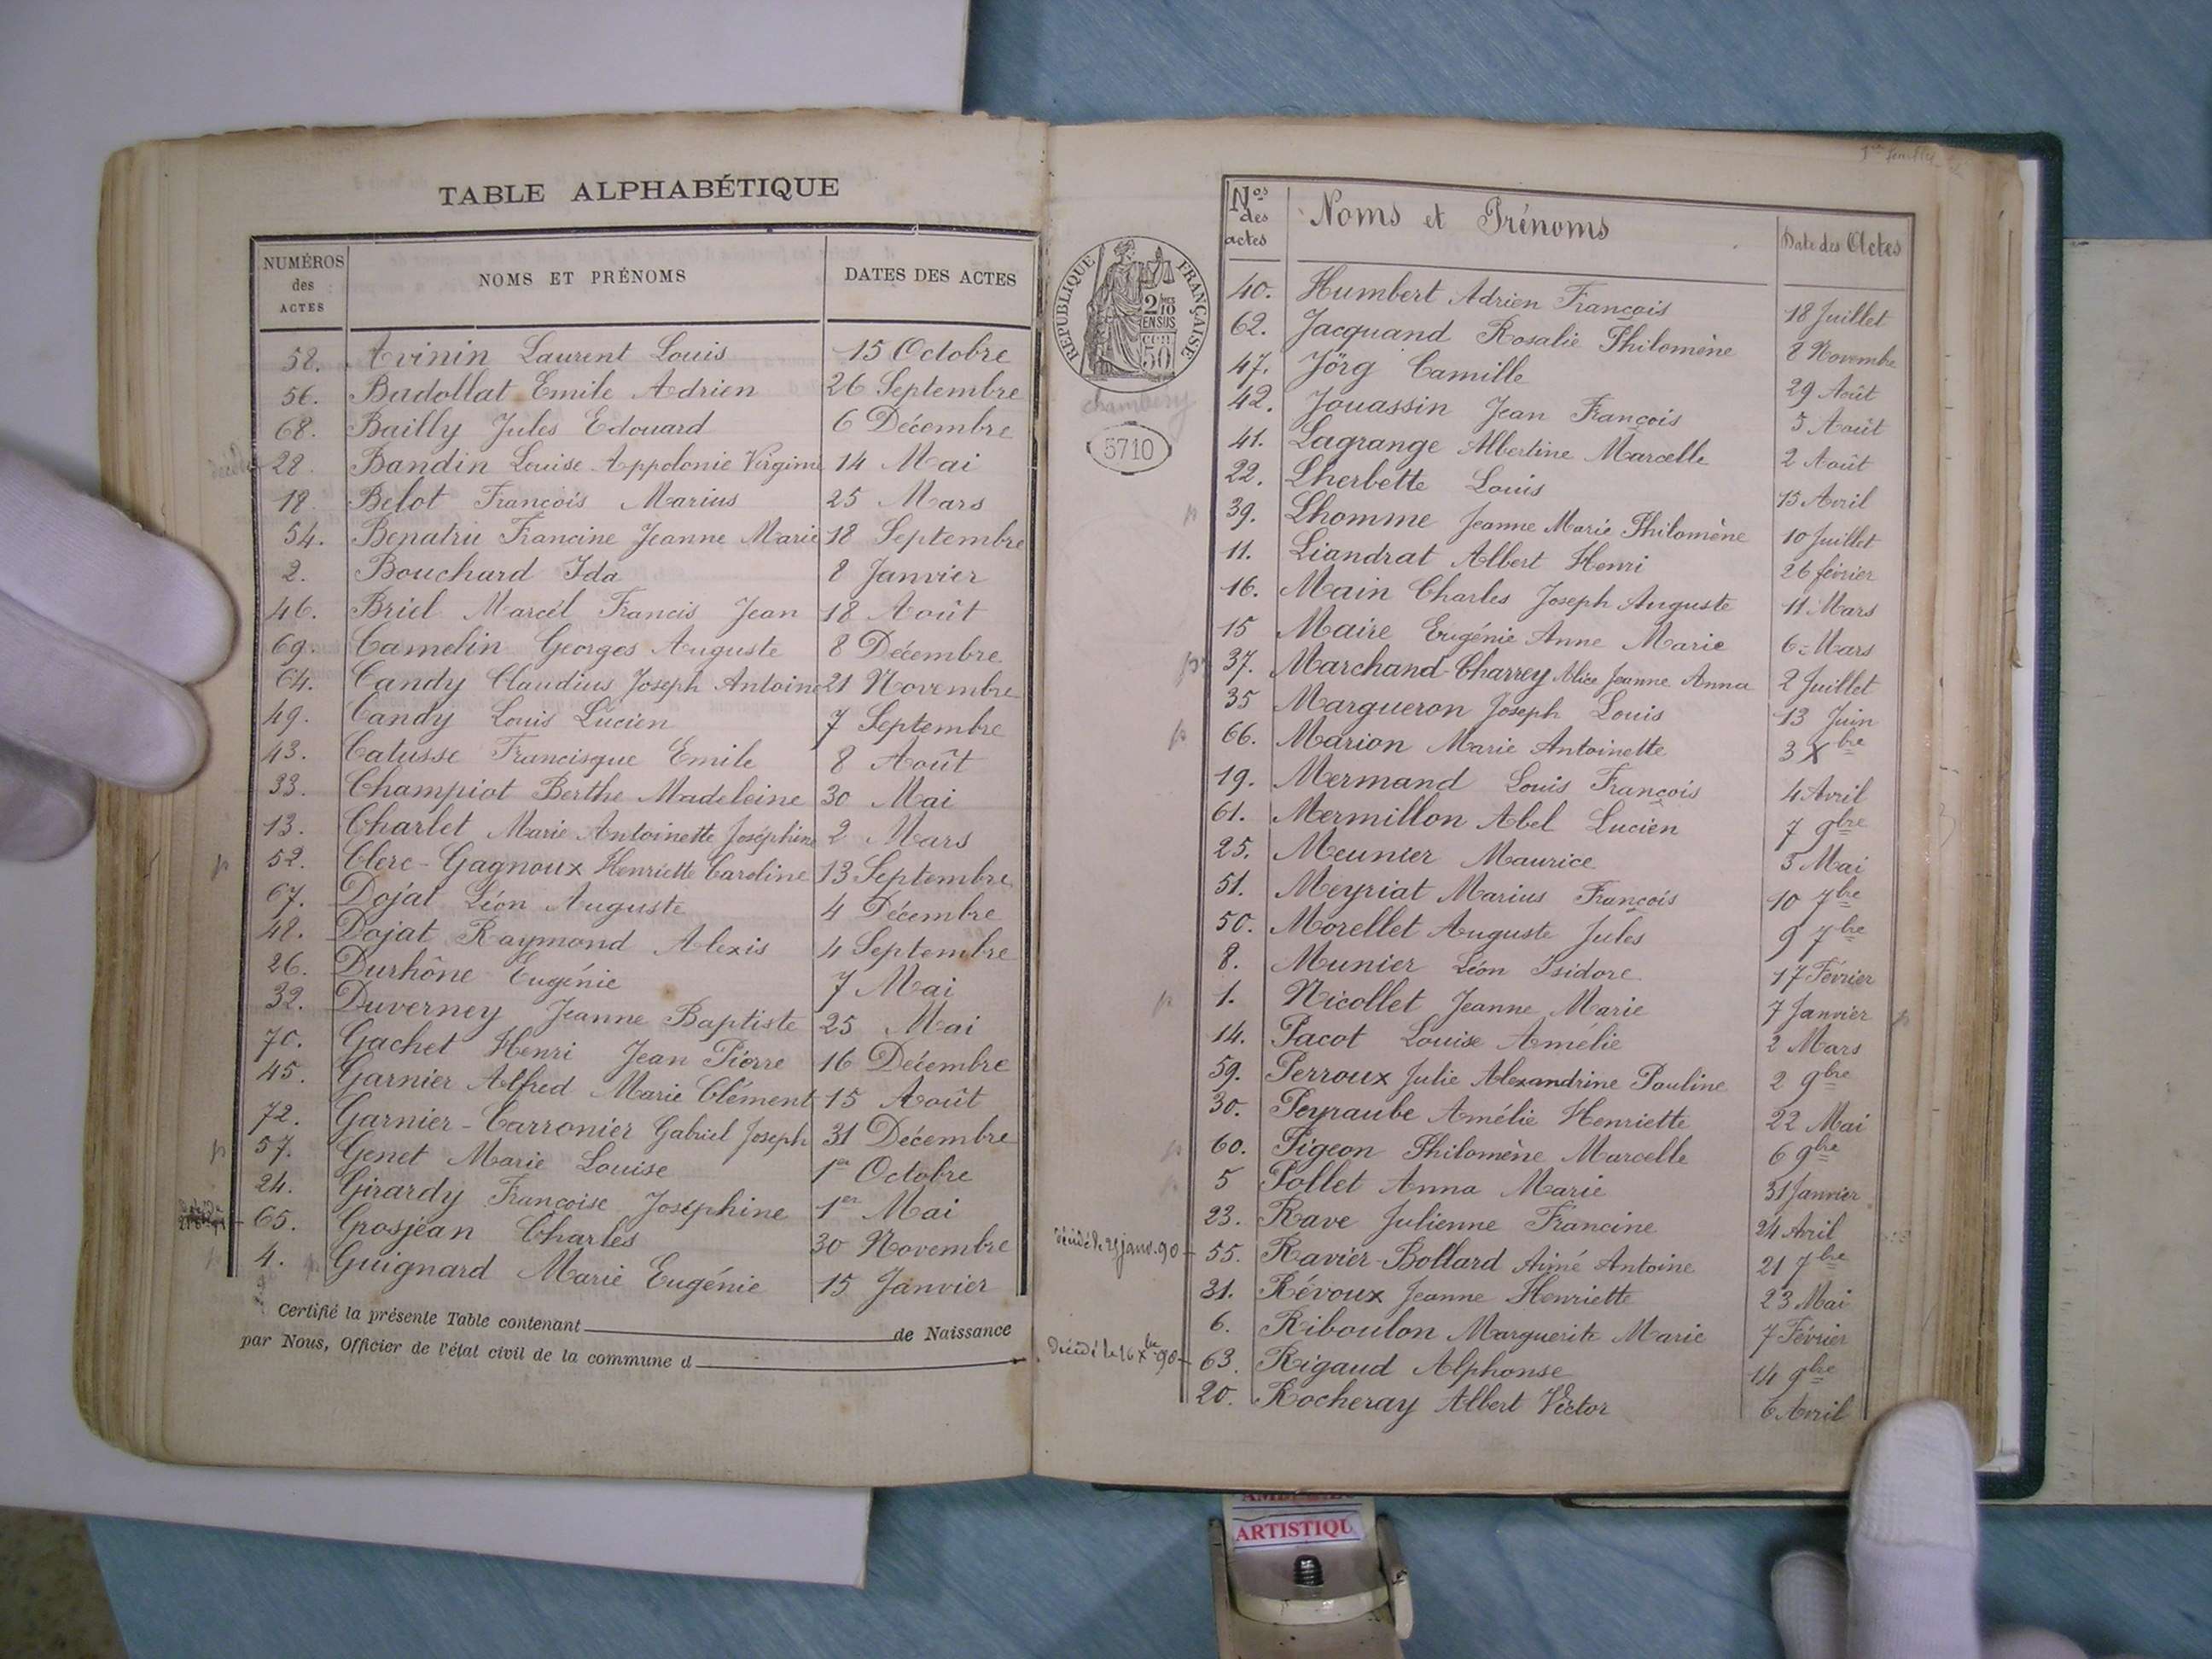 TABLE ALPHABÉTIQUE
NUMÉROS des ACTES NOMS ET PRÉNOMS DATES DES ACTES
58. Avinin Laurent Louis 15 Octobre
56. Badollat Emile Adrien 26 Septembre
68. Bailly Jules Edouard 6 Décembre
28. Bandin Louise Appolonie Virginie 14 Mai
18. Belot François Marius 25 Mars
54. Benatru Francine Jeanne Marie 18 Septembre
2. Bouchard Ida 8 Janvier
46. Briel Marcel Francis Jean 18 Août
69. Camelin Georges Auguste 8 Décembre
64. Candy Claudius Joseph Antoine 21 Novembre
49. Candy Louis Lucien 7 Septembre
43. Catusse Francisque Emile 8 Août
33. Champiot Berthe Madeleine 30 Mai
13. Charlet Marie Antoinette Joséphine 2 Mars
p 52. Clerc-Gagnoux Henriette Caroline 13 Septembre
67. Dojat Léon Auguste 4 Décembre
48. Dojat Raymond Alexis 4 Septembre
26. Durhône Eugénie 7 Mai
32. Duverney Jeanne Baptiste 25 Mai
70. Gachet Henri Jean Pierre 16 Décembre
45. Garnier Alfred Marie Clément 15 Août
72. Garnier-Carronier Gabriel Joseph 31 Décembre
p 57. Genet Marie Louise 1er Octobre
24. Girardy Françoise Joséphine 1er Mai
65. Grosjean Charles 30 Novembre
p 4. Guignard Marie Eugénie 15 Janvier
Certifié la présente Table contenant de Naissance
par Nous, Officier de l'état civil de la commune d
RÉPUBLIQUE FRANÇAISE
2/10 EN SUS
50
chambery
5710
Nos des actes Noms et Prénoms Date des Actes
40. Humbert Adrien François 18 Juillet
62. Jacquand Rosalie Philomène 8 Novembre
47. Jörg Camille 29 Août
42. Jouassin Jean François 5 Août
41. Lagrange Albertine Marcelle 2 Août
22. Lherbette Louis 15 Avril
p 39. Lhomme Jeanne Marie Philomène 10 Juillet
11. Liandrat Albert Henri 26 février
16. Main Charles Joseph Auguste 11 Mars
15 Maire Eugénie Anne Marie 6 Mars
p 37. Marchand-Charrey Alice Jeanne Anna 2 Juillet
35 Margueron Joseph Louis 13 Juin
p 66. Marion Marie Antoinette 3 Xbre
19. Mermand Louis François 4 Avril
61. Mermillon Abel Lucien 7 9bre
25. Meunier Maurice 5 Mai
51. Meyriat Marius François 10 7bre
50. Morellet Auguste Jules 9 7bre
8. Munier Léon Isidore 17 Février
p 1. Nicollet Jeanne Marie 7 Janvier p
14. Pacot Louise Amélie 2 Mars
59. Perroux Julie Alexandrine Pauline 2 9bre
30. Peyraube Amélie Henriette 22 Mai
p 60. Pigeon Philomène Marcelle 6 9bre
5 Pollet Anna Marie 31 Janvier
23. Rave Julienne Francine 24 Avril
décédé le janv. 90 55. Ravier-Bollard Aimé Antoine 21 7bre
31. Révoux Jeanne Henriette 23 Mai
6. Riboulon Marguerite Marie 7 Février
décédé le 16 Xbre 90 63. Rigaud Alphonse 14 9bre
20. Rocheray Albert Victor 6 Avril
ARTISTIQU